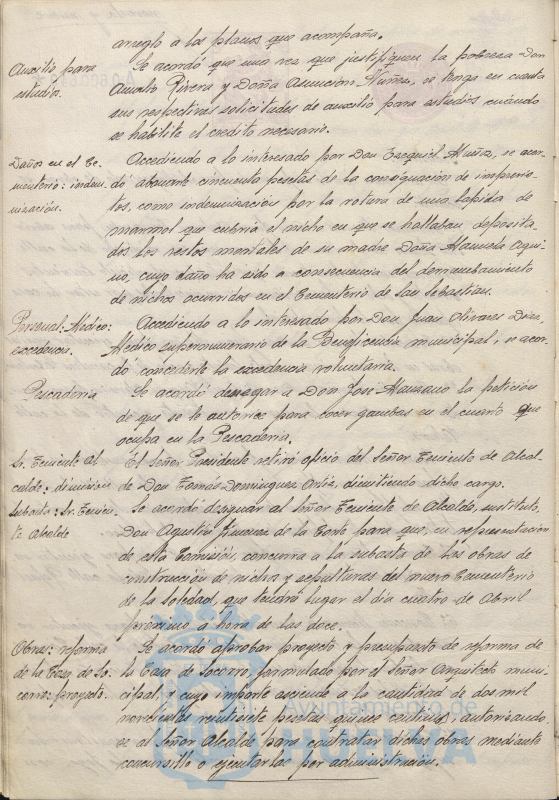 arreglo a los planos que acompaña.
Auxilio para
estudios.
Se acordó que una vez que justifiquen la pobreza Don
Amalio Rivera y Doña Asunción Núñez, se tenga en cuenta
sus respectivas solicitudes de auxilio para estudios cuando
se habilite el crédito necesario.
Daños en el Ce-
menterio: indem-
nización.
Accediendo a lo interesado por Don Ezequiel Muñiz, se acor-
dó abonarle cincuenta pesetas de la consignación de imprevis-
tos, como indemnización por la rotura de una lápida de
marmol que cubría el nicho en que se hallaban deposita-
dos los restos mortales de su madre Doña Manuela Aqui-
no, cuyo daño ha sido a consecuencia del derrumbamiento
de nichos ocurridos en el Cementerio de San Sebastián.
Personal: Médico:
excedencia.
Accediendo a lo interesado por Don Juan Olivares Diez,
Médico supernumerario de la Beneficencia municipal, se acor-
dó concederle la excedencia voluntaria.
Pescadería
Se acordó denegar a Don José Manzano la petición
de que se le autorice para cocer gambas en el cuarto que
ocupa en la Pescadería.
Sr. Teniente Al-
calde: dimisión
El Señor Presidente retiró oficio del Señor Teniente de Alcal-
de Don Tomás Domínguez Ortiz, dimitiendo dicho cargo.
Subasta: Sr. Tenien-
te Alcalde
Se acordó designar al Señor Teniente de Alcalde, sustituto,
Don Agustín Jimenez de la Corte para que, en representación
de esta Comisión, concurra a la subasta de las obras de
construcción de nichos y sepulturas del nuevo Cementerio
de la Soledad, que tendrá lugar el día cuatro de Abril
próximo a hora de las doce.
Obras: reforma
de la Casa de So-
corro: proyecto.
Se acordó aprobar proyecto y presupuesto de reforma de
la Casa de Socorro, formulado por el Señor Arquitecto muni-
cipal y cuyo importe asciende a la cantidad de dos mil
novecientas veintisiete pesetas quince centimos, autorizando-
se al Señor Alcalde para contratar dichas obras mediante
concursillo o ejecutarlas por administración.
Ayuntamiento de
HUELVA